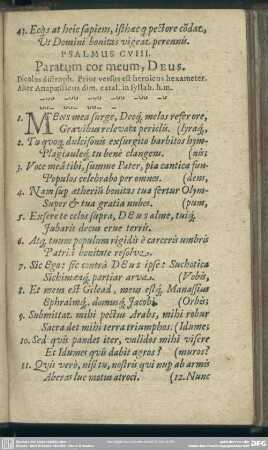 43. Ecqs at heic sapiens, isthæcq; pectore cõdat,
Ut Domini bonitas vigeat perennis.
PSALMUS CVIII.
Paratum cor meum, DEUS.
Dicolos distroph. Prior versus est heroicus hexameter.
Alter Anapæsticus dim. catal. in syllab. h.m.
1. MEns mea surge, Deoq; melos resere,
Gravibus relevata periclis. (lyraq;
2. Tu quoq; dulcisonis exsurgito barbitos hym-
Plagiauleq; tu benè clangens. (nis;
3. Voce meâ tibi, summe Pater, pia cantica fun-
Populos celebrabo per omnes. (dens,
4. Nam sup ætheriis bonitas tua fertur Olym-
Super & tua gratia nubes. (pum,
5. Exsere te celos supra, DEus alme, tuiq;
Jubaris decus erue terris.
6. Atq; tuum populum rigidi è carceris umbris
Patriâ bonitate resolve.
7. Sic Ego: sic contrà DEus ipse: Suchotica
Sichimæaq; partiar arva. (Vobis,
8. Et meus est Gilead, meus estq; Manassius
Ephraimq; domusq; Jacobi. (Orbis;
9. Submittat mihi pectus Arabs, mihi robur
Sacra det mihi terra triumphos. (Idumes;
10. Sed quis pandet iter, validos mihi visere
Et Idumes quis dabit agros? (muros?
11. Quis verò, nisi tu, nostris qui nup ab armis
Aberas lue motus atroci. (12. Nunc